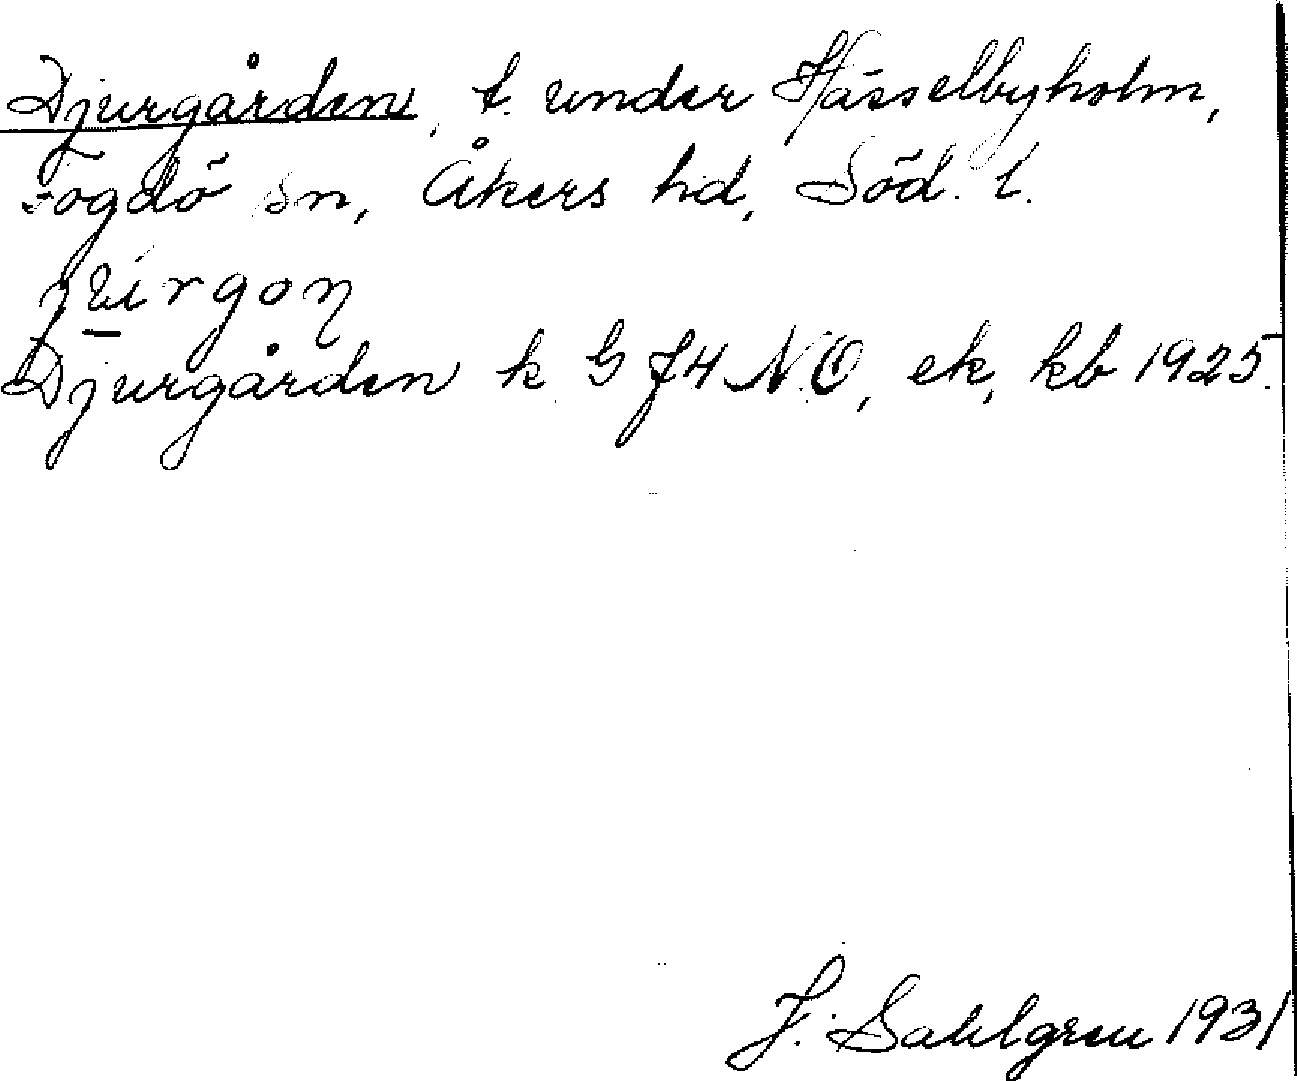 Djurgården, t. under Hässelbyholm,
Fogdö sn, Åkers hd, Söd. l.
Djurgården k G f4 N.O, ek, kb 1925.
J. Sahlgren 1931